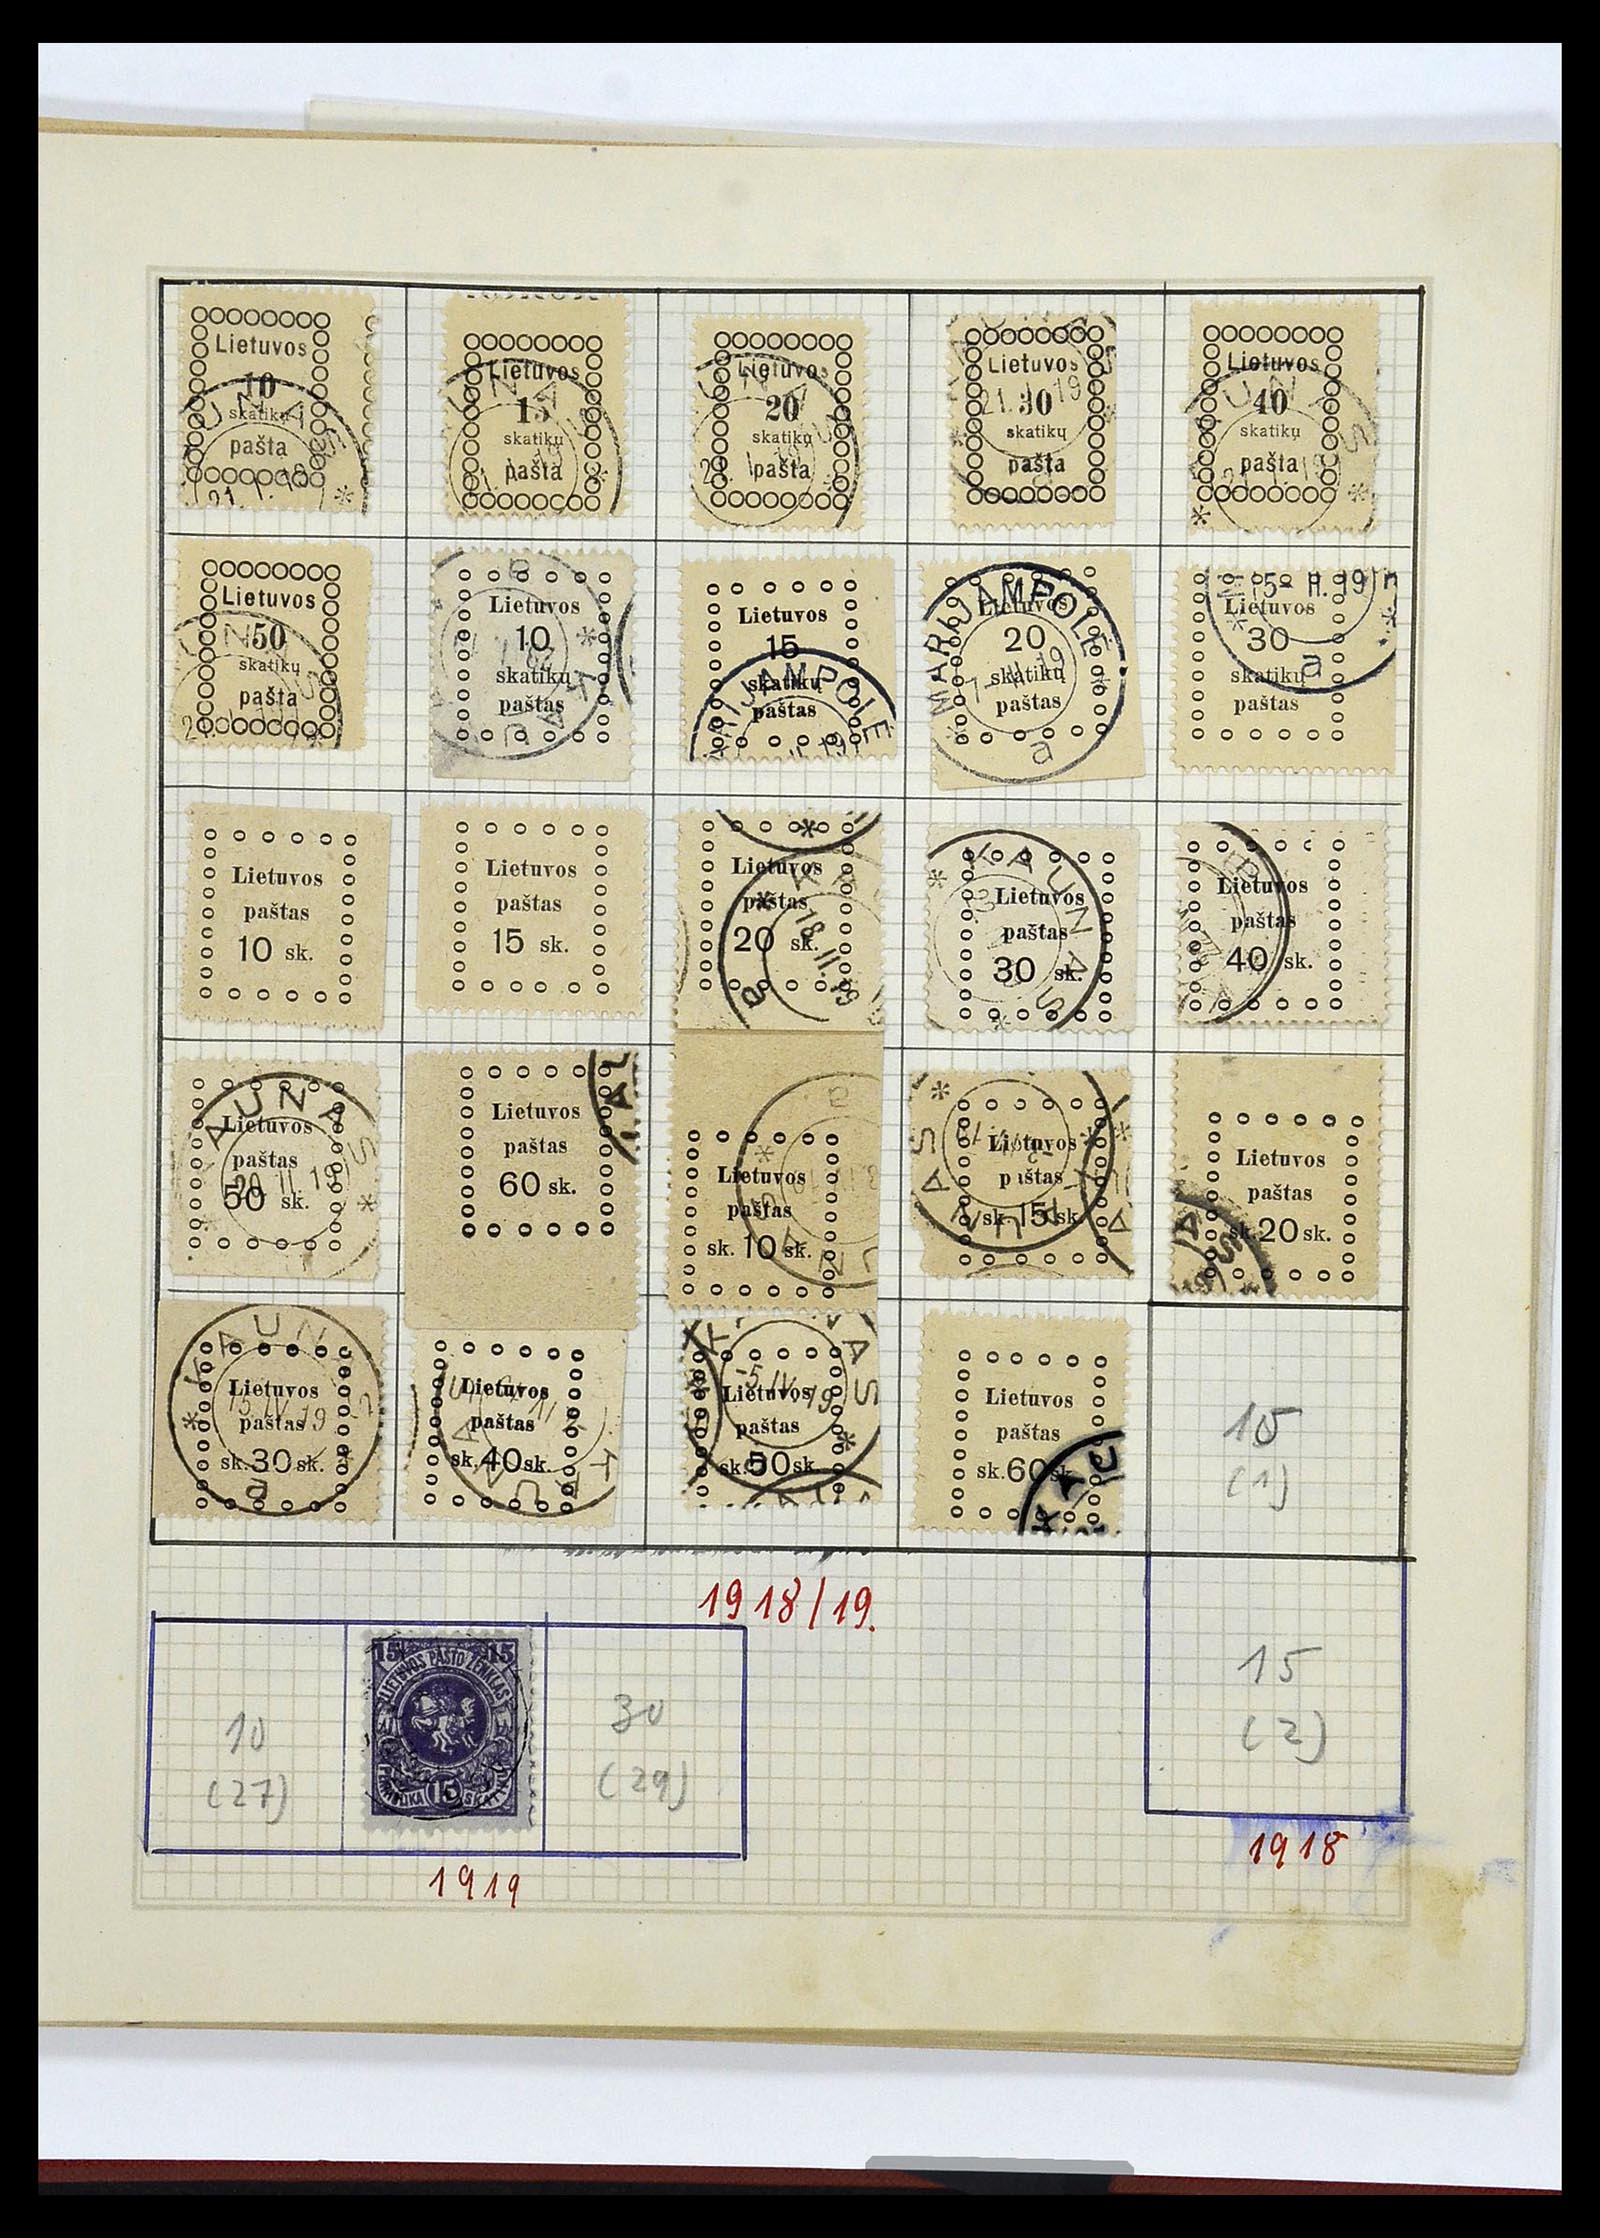 Lietuvos
10
skatikų
pašta
21. I. 19
Lietuvos
15
skatikų
pašta
Lietuvos
20
skatikų
pašta
Lietuvos
30
skatikų
pašta
21. I. 19
Lietuvos
40
skatikų
pašta
Lietuvos
50
skatikų
pašta
Lietuvos
10
skatikų
paštas
Lietuvos
15
skatikų
paštas
RIJAMPOLĖ
Lietuvos
20
skatikų
paštas
MARIJAMPOLĖ
a
Lietuvos
30
skatikų
paštas
a
Lietuvos
paštas
10 sk.
Lietuvos
paštas
15 sk.
Lietuvos
paštas
20 sk.
18. II. 19
a
Lietuvos
paštas
30 sk.
KAUNAS
Lietuvos
paštas
40 sk.
Lietuvos
paštas
50 sk.
KAUNAS
20 II. 19
Lietuvos
paštas
60 sk.
Lietuvos
paštas
sk. 10 sk.
Lietuvos
sk. 15 sk.
KAUNAS
Lietuvos
paštas
sk. 20 sk.
Lietuvos
paštas
sk. 30 sk.
KAUN
15. IV 19
a
Lietuvos
paštas
sk. 40 sk.
Lietuvos
paštas
sk. 50 sk.
-5. IV. 19
Lietuvos
paštas
sk. 60 sk.
KAU
15
(1)
1918/19.
10
(27)
15 15
LIETUVOS PAŠTO ŽENKLAS
15
SKATIK
30
(29)
15
(2)
1919
1918